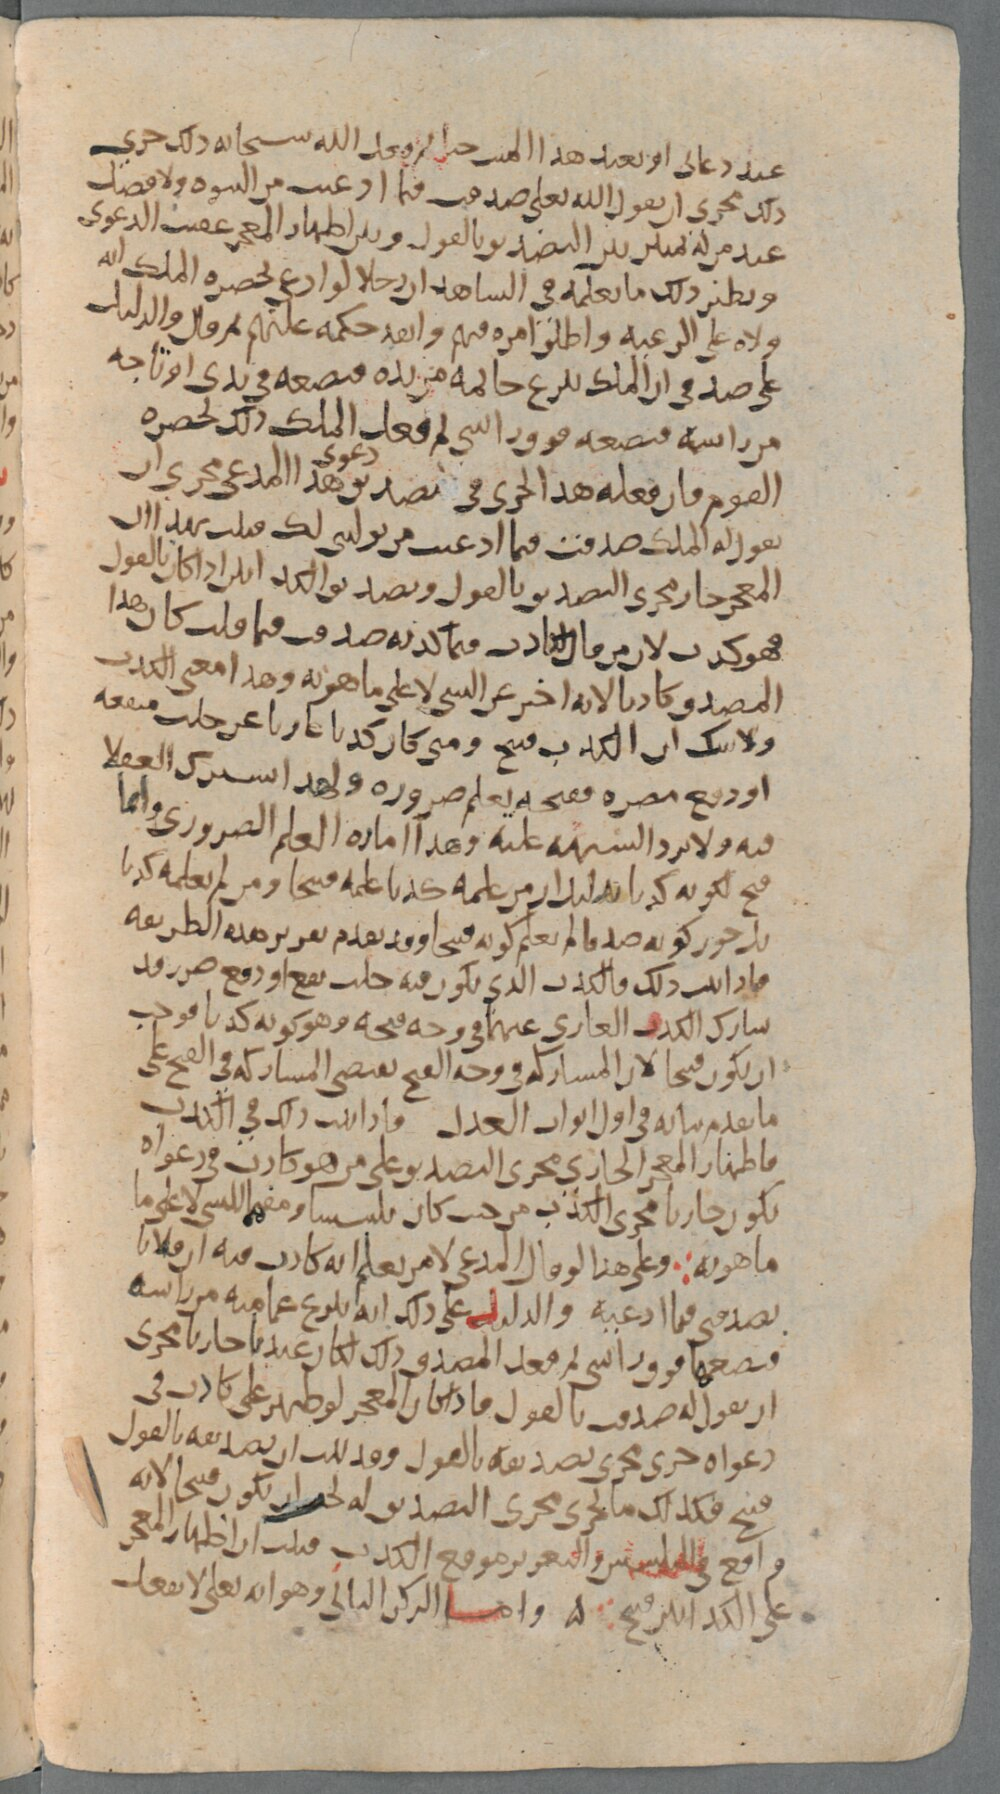 عند دعائي او بعد هذا الميت حيا ثم فعل الله سبحانه ذلك جرى
ذلك مجرى ان يقول الله تعلى صدقت فيما ادعيت من النبوة ولا فصل
عند من له تمييز بين التصديق بالقول وبين اظهار المعجز عقيب الدعوى
ونظير ذلك ما نعلمه في الشاهد ان رجلا لو ادعى بحضرة الملك انه
ولاه على الرعية واطلق امره فيهم وانفذ حكمه عليهم ثم قال والدليل
على صدقي ان الملك ينزع خاتمه من يده فيضعه في يدي او تاجه
من راسه فيضعه فوق راسي ثم فعل الملك ذلك بحضرة
القوم فان فعله هذا يجرى في تصديق دعوى هذا المدعي مجرى ان
يقول له الملك صدقت فيما ادعيت من توليتي لك فثبت بهذا ان
المعجز جار مجرى التصديق بالقول وتصديق الكذابين اذا كان بالقول
فهو كذب لان من قال لكاذب فيما كذب به صدقت فيما قلت كان هذا
المصدق كاذبا لانه اخبر عن الشي لا على ما هو به وهذا معنى الكذب
ولا شك ان الكذب قبيح ومتى كان كذبا عاريا عن جلب منفعة
او دفع مضرة فقبحه يعلم ضرورة ولهذا اشترك العقلا
فيه ولا ترد الشبهة عليه وهذا امارة العلم الضروري وانما
قبح لكونه كذبا بدليل ان من علمه كذبا علمه قبيحا ومن لم يعلمه كذبا
بل جوز كونه صدقا لم يعلم كونه قبيحا وقد تقدم تقرير هذه الطريقة
فاذا ثبت ذلك فالكذب الذي يكون فيه جلب نفع او دفع ضرر قد
شارك الكذب العاري عنهما في وجه قبحه وهو كونه كذبا فوجب
ان يكون قبيحا لان المشاركة في وجه القبح تقتضي المشاركة في القبح على
ما تقدم بيانه في اول ابواب العدل فاذا ثبت ذلك في الكذب
فاظهار المعجز الجاري مجرى التصديق على من هو كاذب في دعواه
يكون جاريا مجرى الكذب من حيث كان تلبيسا ومفهما للشي لا على ما
ما هو به وعلى هذا لو قال المدعي لامر يعلم انه كاذب فيه ان فلانا
يصدقني فيما ادعيه والدليل على ذلك انه ينزع عمامته من راسه
فيضعها فوق راسي ثم فعل المصدق ذلك لكان عندنا جاريا مجرى
ان يقول له صدقت بالقول فاذا كان المعجز لو ظهر على كاذب في
دعواه جرى مجرى تصديقه بالقول وقد ثبت ان تصديقه بالقول
قبيح فكذلك ما يجرى مجرى التصديق له يجب ان يكون قبيحا لانه
واقع في التلبيس والتغرير موقع الكذب فثبت ان اظهار المعجز
على الكذابين قبيح واما الركن الثاني وهو انه تعلى لا يفعل